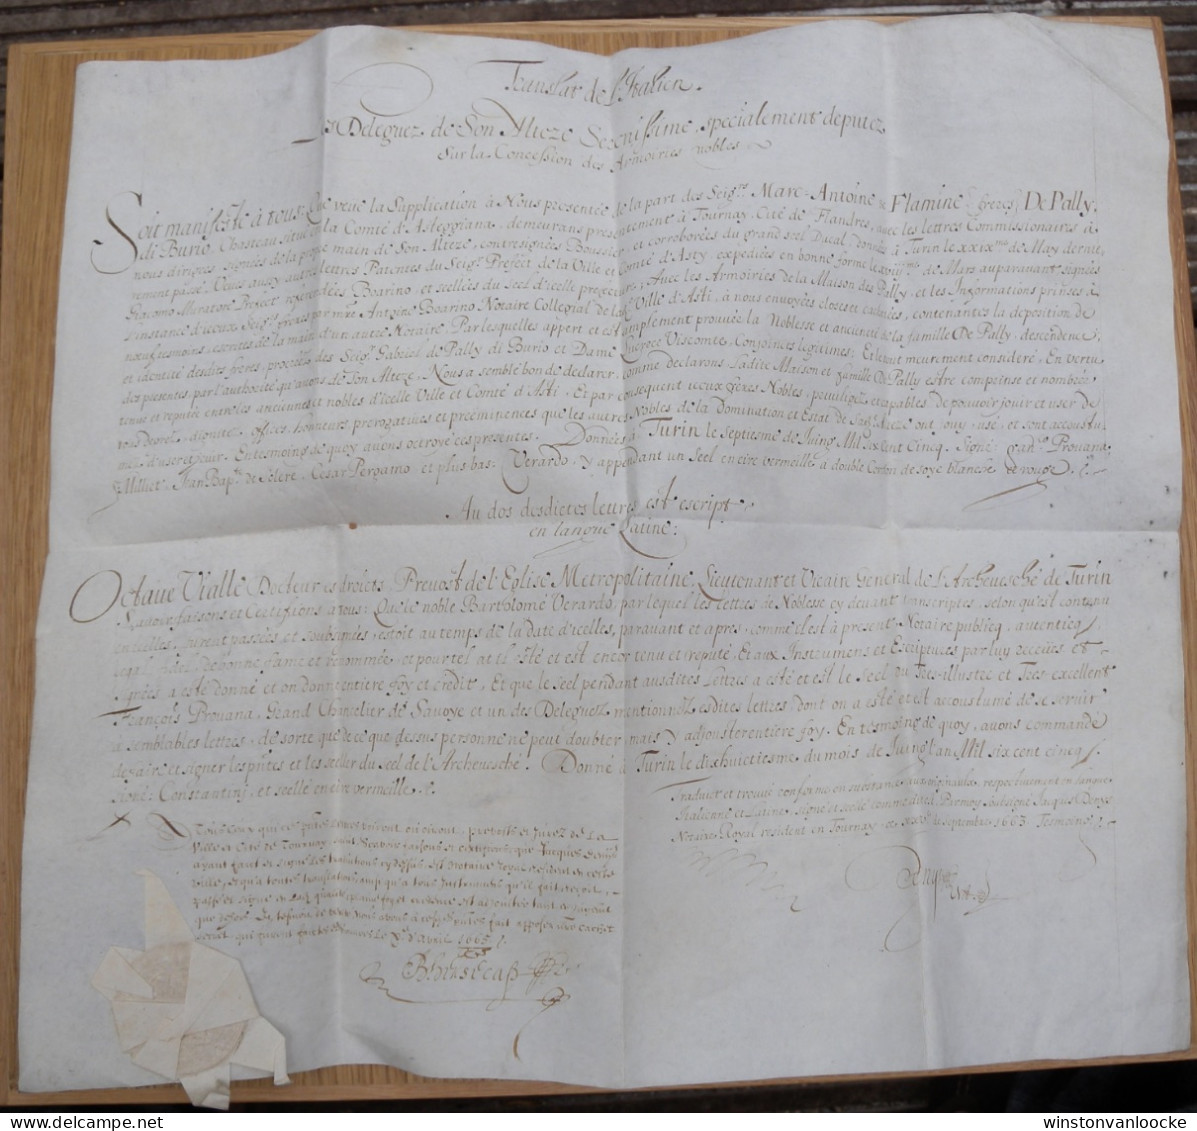 Translat de l'Italien.
Les Deleguez de Son Alteze Serenissime, specialement deputez
sur la Concession des Armoiries nobles
Soit manifeste à tous. Que veüe la Supplication à Nous presentée de la part des Seigrs Marc-Antoine & Flamine freres De Pally,
di Burio, Chasteau situé en la Comté d'Asteggiana, demeurans presentement à Tournay, Cité de Flandres, avec les lettres Commissoriales à
nous dirigees, signées de la propre main de Son Alteze, contresignées et corroborées du grand seel Ducal données à Turin le xxixme de May dernie-
rement passé. Veues aussy autres lettres Patentes du Seigr Prefect de la Ville et Comté d'Asty expediées en bonne forme me de Mars auparavant signées
Giacomo Muratore Prefect Boarino, et seellées du Seel d'icelle prefecture, Avec les Armoiries de la Maison des Pally, et les Informations prinses à
l'instance d'iceux Seigrs freres par moy Antoine Boarino Notaire Collegial de la Ville d'Asti, à nous envoyées closes et cachetées, contenantes la deposition de
neuf tesmoins, escrites de la main d'un autre Notaire. Par lesquelles appert et est amplement prouvée la Noblesse et ancienneté de la famille De Pally, descendence,
et identité desdits freres, procedés des Seigr Gabriel de Pally di Burio et Dame Visconte, Conjoincts legitimes; Et le tout meurement consideré, En vertu
des presentes, par l'authorité qu'avons de Son Alteze, Nous a semblé bon de declarer, comme declarons Ladite Maison et famille De Pally estre comprinse et nombrée,
tenue et reputée entre les anciennes et nobles d'icelle Ville et Comté d'Asti, Et par consequent iceux freres Nobles, privilegiez et capables de pouvoir jouir et user de
tous degrez, dignitez, offices, honneurs prerogatives et preeminences que les autres Nobles de la Domination et Estat de Son Alteze ont ouy, usé, et sont accoustu-
mez d'user et jouir. En tesmoing de quoy avons octroyé ces presentes. Données à Turin le septiesme de Juing Mil six cent Cinq. Signé: Prouana,
Milliet, Jean Bapte de Solere, Cesar Pergamo et plus bas: Verardo. y appendant un Seel en cire vermeille à double Cordon de soye blanche et rouge.
Au dos desdictes lettres est escript
en langue Latine:
Octave Vialle Docteur es droicts, Prevost de l'Eglise Metropolitaine, Lieutenant et Vicaire General de l'Archevesché de Turin
Scavoir faisons et Certifions à tous: Que le noble Bartholomé Verardo, par lequel les lettres de Noblesse cy devant transcriptes, selon qu'est contenu
en icelles, furent passées et soubsignées, estoit au temps de la date d'icelles, paravant et apres, comme il est à present, Notaire publicq, autenticq,
legal, fidel, de bonne fame et renommée, et pour tel at il esté et est encor tenu et reputé, Et aux Instrumens et Escriptures par luy receües et
signées a esté donné et on donne entiere foy et credit, Et que le seel pendant ausdites Lettres a esté et est le seel du Tres-illustre et Tres excellent
François Prouana, Grand Chancelier de Savoye et un des Deleguez, mentionnez esdites lettres, dont on a esté et est accoustumé de se servir
à semblables lettres, de sorte que de ce que dessus personne ne peut doubter, mais y adjouster entiere foy. En tesmoing de quoy, avons commandé
de faire et signer les prntes et les seeller du seel de l'Archevesché. Donné à Turin le dixhuictiesme du mois de Juing l'an Mil six cent cinq
signé: Constantin, et seellé en cire vermeille.
Traduict et trouvé conforme en substance aux originaulx respectivement en langue
Italienne et Latine, signé et seellé comme dit est, Par moy soubsigné Jacques Denys
Notaire Royal resident en Tournay, ce Septembre 1663. Tesmoing
A Tous ceux qui ces prntes lettres verront ou oiront, Prevosts et Jurez de la
Ville et Cité de Tournay, Salut. Scavoir faisons et certifions que Jacques Denys
ayant fait et signé les translations cy dessus, est Notaire Royal resident en cette
Ville, et qu'a toutes translations qu'a tous Instrumens qu'il fait reçoit,
passe et signe en laditte qualité, plaine foy et credence est adjoustée tant en jugement
que dehors. En tesmoin de quoy nous avons à ces prntes fait apposer nre cachet
 d'Avril 1665.
winstonvanloocke